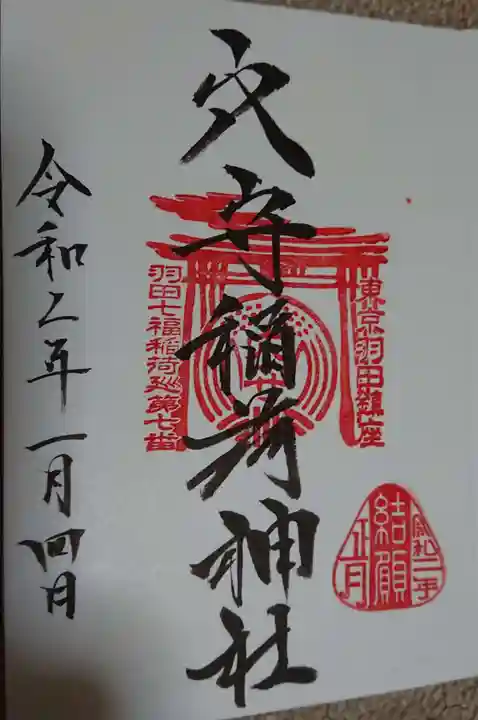 東京羽田鎮座
穴守稲荷神社
羽田七福稲荷巡第七番
令和二年
結願
正月
令和二年一月四日